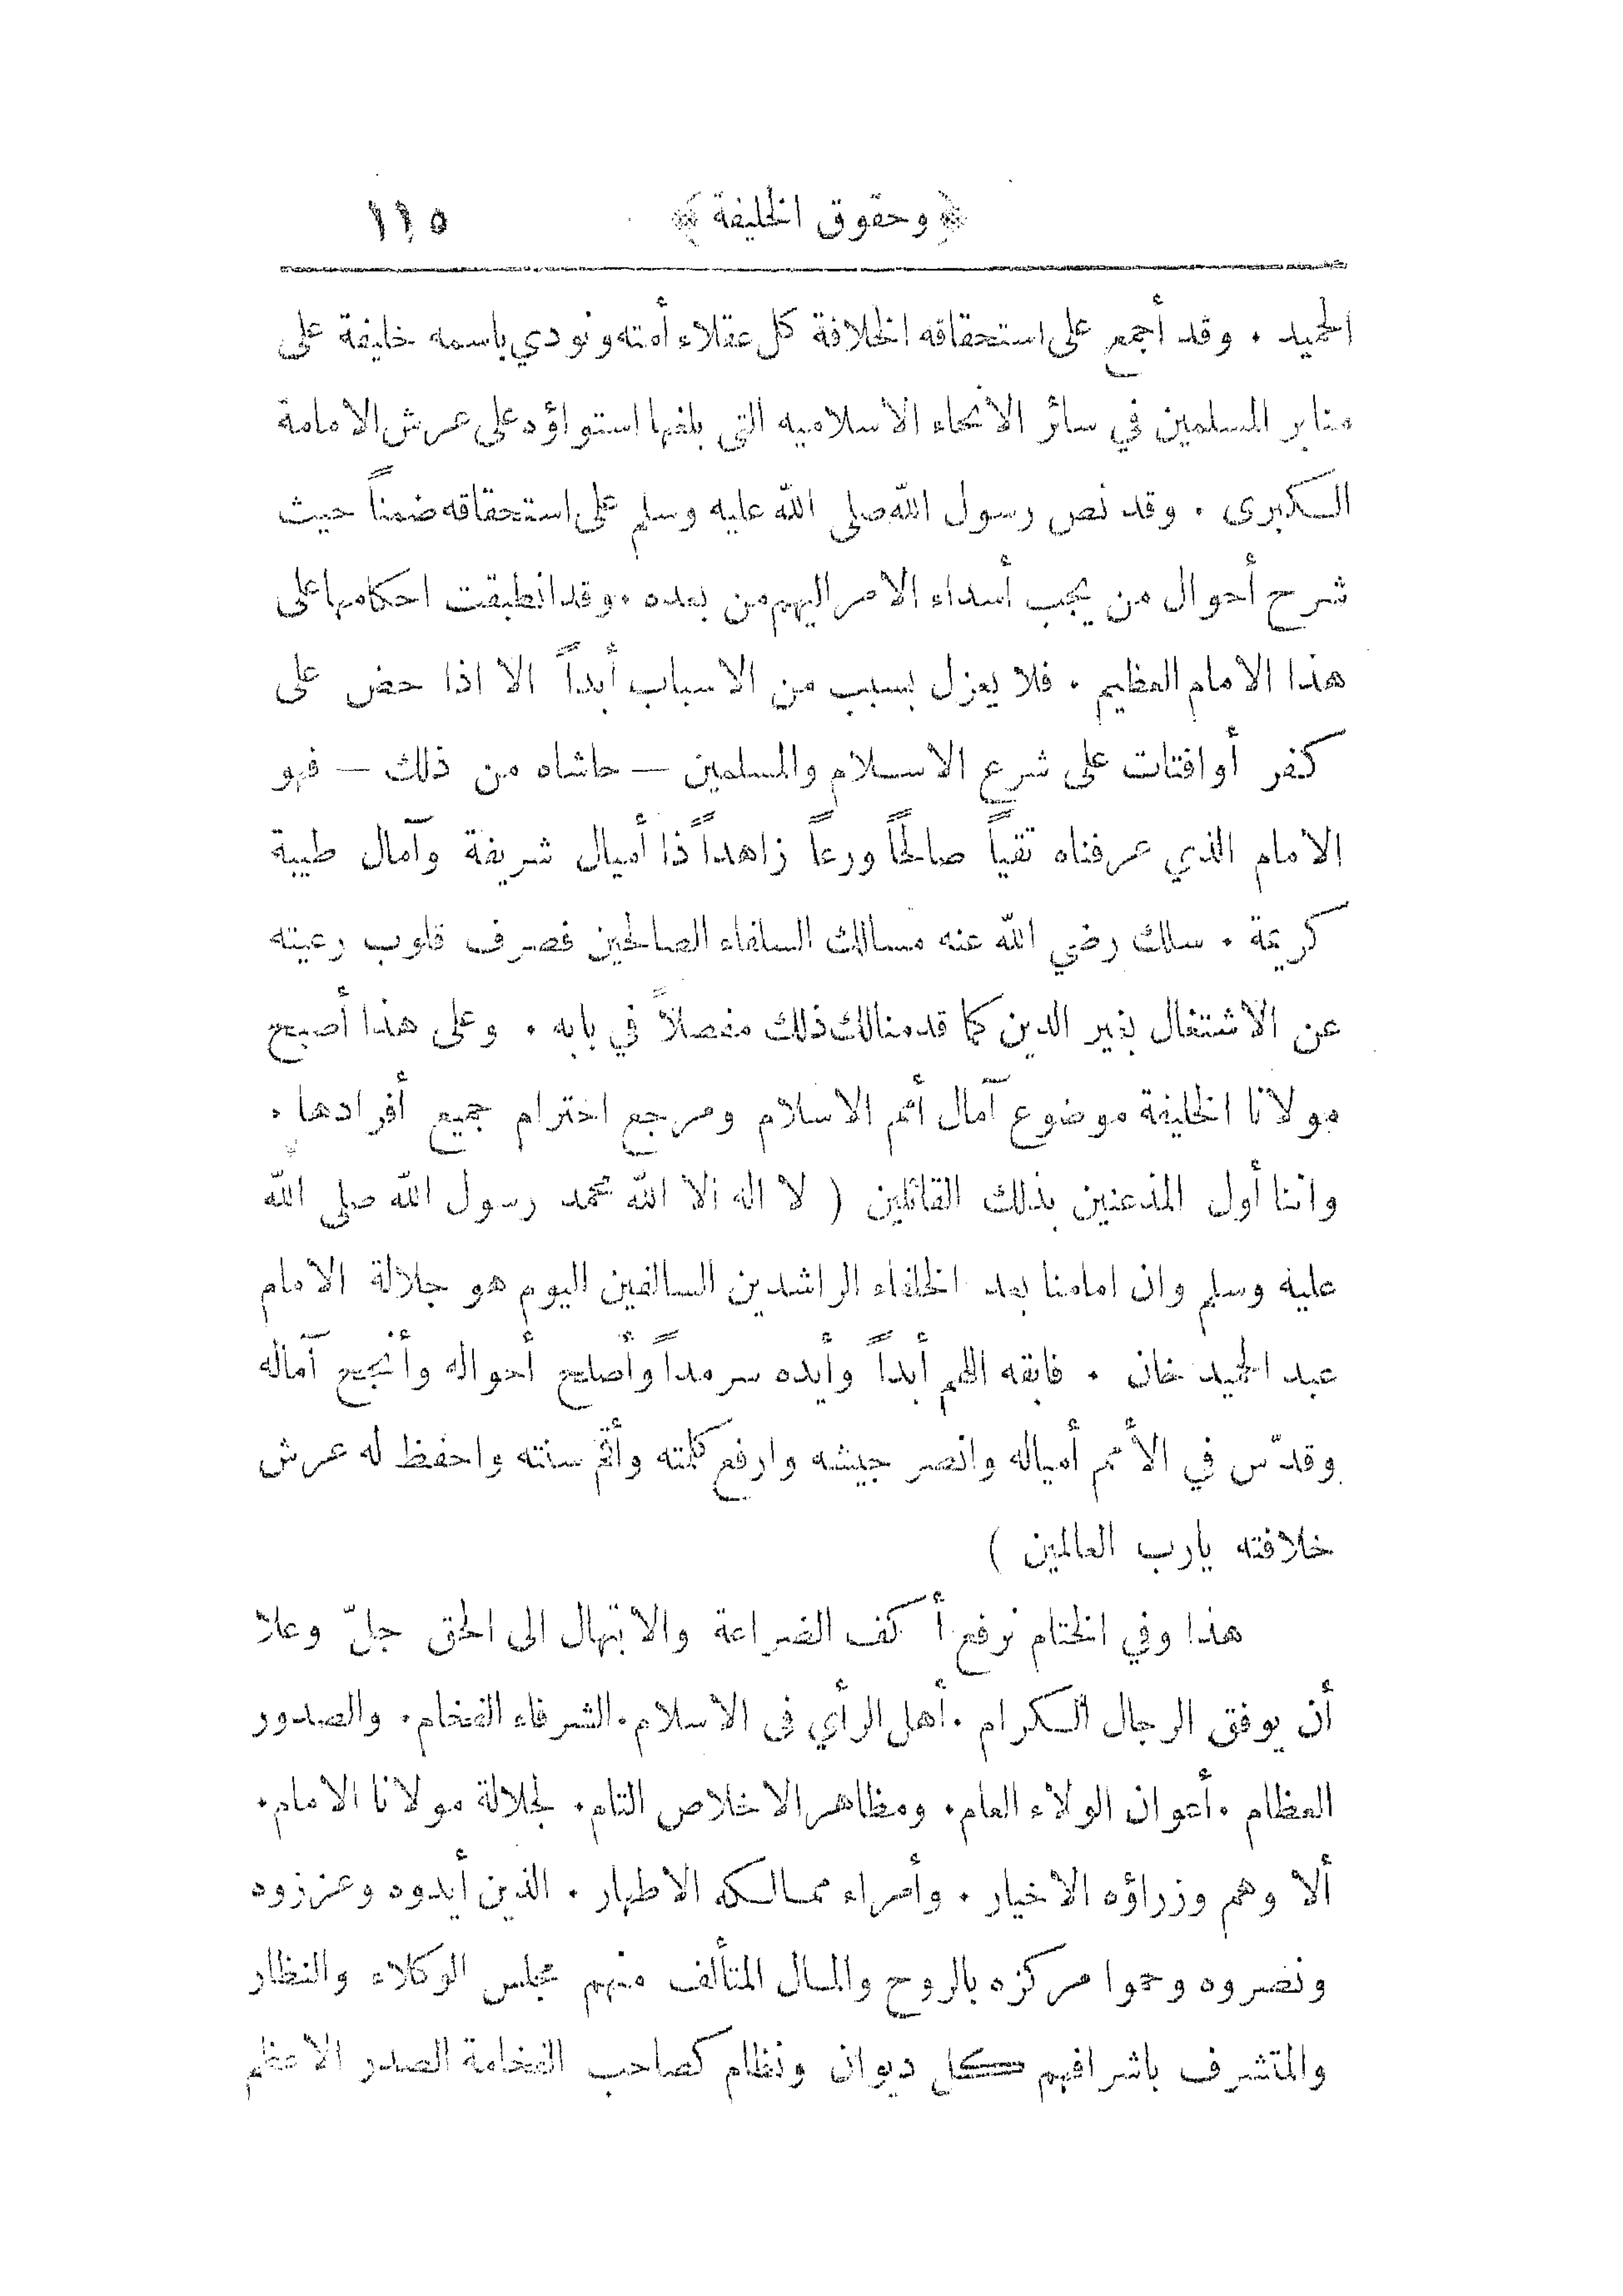 ﴿ وحقوق الخليفة ﴾ ١١٥
الحميد . وقد أجمع على استحقاقه الخلافة كل عقلاء أمته ونودي باسمه خليفة على
منابر المسلمين في سائر الانحاء الاسلاميه التى بلغها استواؤه على عرش الامامة
الكبرى . وقد نص رسول الله صلى الله عليه وسلم على استحقاقه ضمناً حيث
شرح أحوال من يجب أسداء الامر اليهم من بعده . وقد انطبقت احكامها على
هذا الامام العظيم . فلا يعزل بسبب من الاسباب أبداً الا اذا حض على
كفر أو افتات على شرع الاسلام والمسلمين — حاشاه من ذلك — فهو
الامام الذي عرفناه تقياً صالحاً ورعاً زاهداً ذا أميال شريفة وآمال طيبة
كريمة . سلك رضي الله عنه مسالك السلفاء الصالحين فصرف قلوب رعيته
عن الاشتغال بغير الدين كما قدمنا لك ذلك مفصلاً في بابه . وعلى هذا أصبح
مولانا الخليفة موضوع آمال أمم الاسلام ومرجع احترام جميع أفرادها .
واننا أول المذعنين بذلك القائلين ( لا اله الا الله محمد رسول الله صلى الله
عليه وسلم وان امامنا بعد الخلفاء الراشدين السالفين اليوم هو جلالة الامام
عبد الحميد خان . فابقه اللهم أبداً وأيده سرمداً وأصلح أحواله وأنجح آماله
وقدّس في الأمم أمياله وانصر جيشه وارفع كلمته وأقم سنته واحفظ له عرش
خلافته يارب العالمين )
هذا وفي الختام نرفع أكف الضراعة والابتهال الى الحق جلّ وعلا
أن يوفق الرجال الكرام . أهل الرأي فى الاسلام . الشرفاء الفخام . والصدور
العظام . أعوان الولاء العام . ومظاهر الاخلاص التام . لجلالة مولانا الامام .
ألا وهم وزراؤه الاخيار . وأمراء ممالكه الاطهار . الذين أيدوه وعززوه
ونصروه وحموا مركزه بالروح والمال المتألف منهم مجلس الوكلاء والنظار
والمتشرف باشرافهم كل ديوان ونظام كصاحب الفخامة الصدر الاعظم